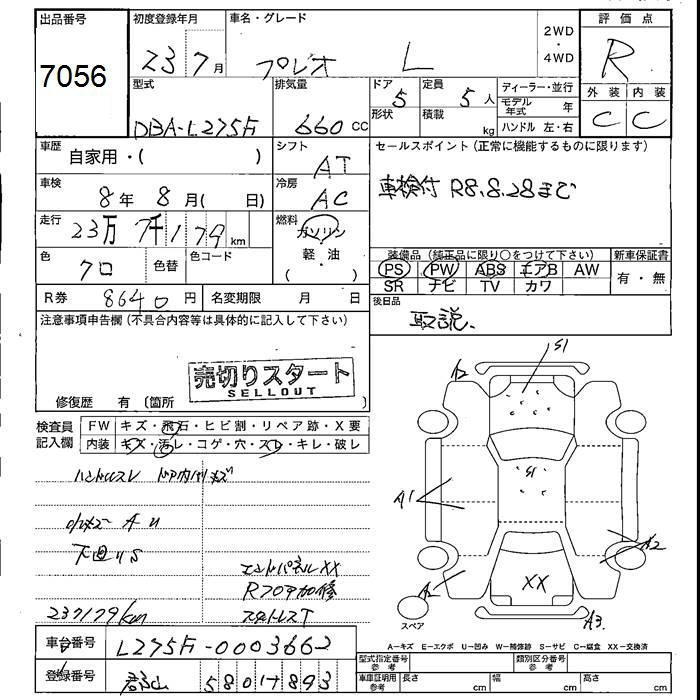 出品番号
7056
初度登録年月
23 7月
車名・グレード
プレオ L
2WD
・
4WD
評価点
R
型式
DBA-L275F
排気量
660 cc
ドア
5
形状
定員
5人
積載
kg
ディーラー・並行
モデル年式 年
ハンドル 左・右
外装 内装
C C
車歴
自家用・( )
シフト
AT
セールスポイント(正常に機能するものに限ります)
車検付 R8.8.28まで
車検
8年 8月( 日)
冷房
AC
走行
23万 7千179km
燃料
ガソリン
軽・油
( )
色
クロ
色替
色コード
装備品(純正品に限り○をつけて下さい)
PS PW ABS エアB AW
SR ナビ TV カワ
新車保証書
有・無
R券 8640円
名変期限 月 日
後日品
取説.
注意事項申告欄(不具合内容等は具体的に記入して下さい)
売切りスタート
SELLOUT
修復歴 有(箇所 )
検査員記入欄
FW キズ・飛石・ヒビ割・リペア跡・X要
内装 キズ・汚レ・コゲ・穴・スレ・キレ・破レ
ハンドルスレ ドア内ハリキズ
下廻りS
エンドパネルXX
Rフロア加修
スタットレスT
237179km
S1
A2
S1
A1
A2
A2
XX
A3
スペア
A-キズ E-エクボ U-凹み W-補修跡 S-サビ C-腐食 XX-交換済
車台番号
L275F-0003662
登録番号
郡山 580 1893
型式指定番号
参考
類別区分番号
参考
車庫証明用
参考
長さ cm
幅 cm
高さ cm